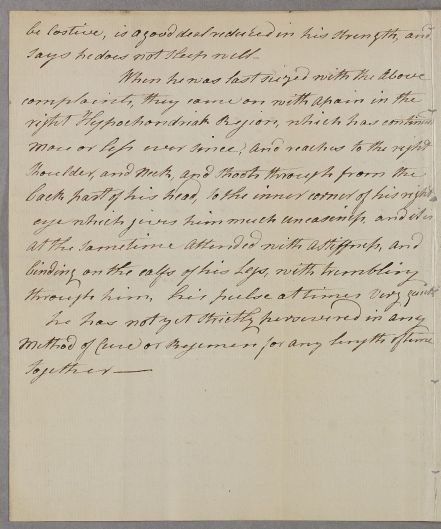 be Costive, is a good deal reduced in his strength, and
says he does not sleep well.
When he was last seized with the above
complaints, they came on with a pain in the
right Hypochondriak Region, which has continued
more or less ever since, and reaches to the right
shoulder, and neck, and shoots through from the
back part of his head, to the inner corner of his right
eye which gives him much uneasiness, and is
at the same time attended with a stiffness, and
binding on the calfs of his legs, with trembling
through him, his pulse at times very quick
he has not yet strictly persevered in any
Method of Cure or Regimen for any length of time
together —